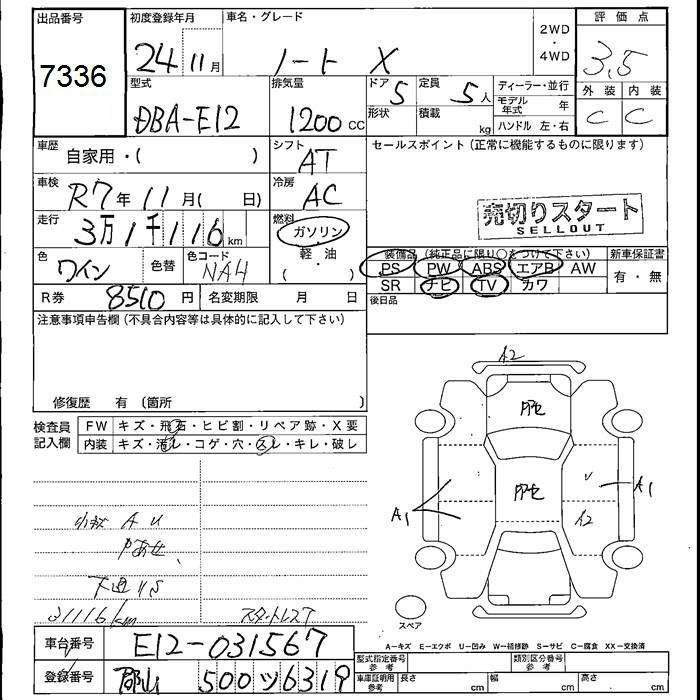 出品番号 初度登録年月 車名・グレード 2WD・4WD 評価点
7336 24 11月 ノート X 3.5
型式 排気量 ドア 5 定員 5人 ディーラー・並行 外装 内装
DBA-E12 1200cc 形状 積載 kg モデル年式 年 C C
ハンドル 左・右
車歴 自家用・( ) シフト AT セールスポイント(正常に機能するものに限ります)
車検 R7年11月( 日) 冷房 AC
売切りスタート
SELLOUT
走行 3万1千116km 燃料 ガソリン・軽油( )
装備品(純正品に限り○をつけて下さい) 新車保証書
色 ワイン 色替 色コード NAH PS PW ABS エアB AW 有・無
SR ナビ TV カワ
R券 8510円 名変期限 月 日 後日品
注意事項申告欄(不具合内容等は具体的に記入して下さい)
修復歴 有(箇所 )
検査員記入欄 FW キズ・飛石・ヒビ割・リペア跡・X要
内装 キズ・汚レ・コゲ・穴・スレ・キレ・破レ
A2
A1
A1
A2
小キズ A U
下廻りS
31116km
スペア
A-キズ E-エクボ U-凹み W-補修跡 S-サビ C-腐食 XX-交換済
車台番号 E12-031567 型式指定番号参考 類別区分番号参考
登録番号 郡山 500 ツ 6319 車庫証明用参考 長さ cm 幅 cm 高さ cm